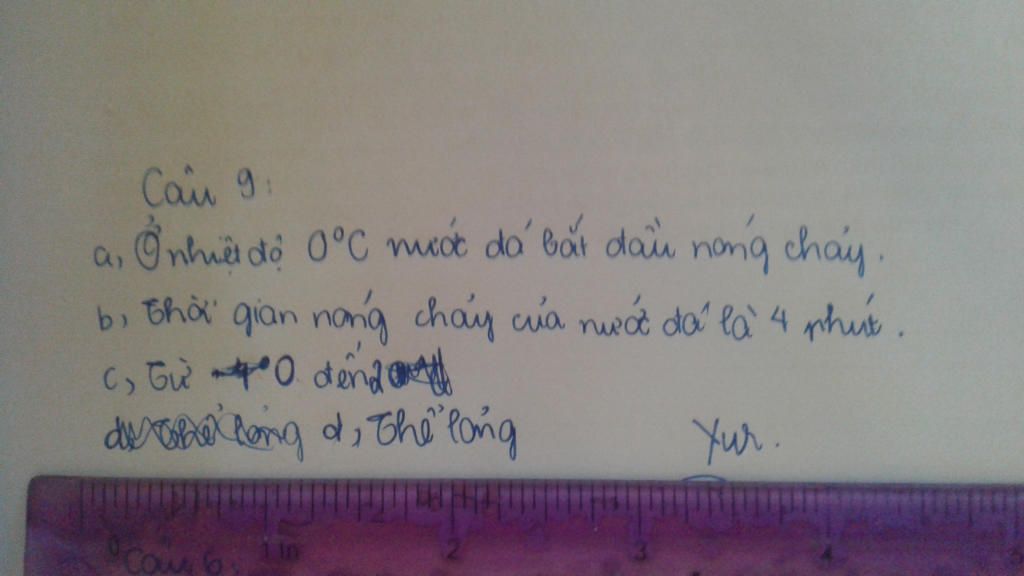 Câu 9:
a, Ở nhiệt độ 0°C nước đá bắt đầu nóng chảy.
b, Thời gian nóng chảy của nước đá là 4 phút.
c, Từ 0 đến
d, Thể lỏng Yur.
1 in 2 3 4 5
Câu 6: